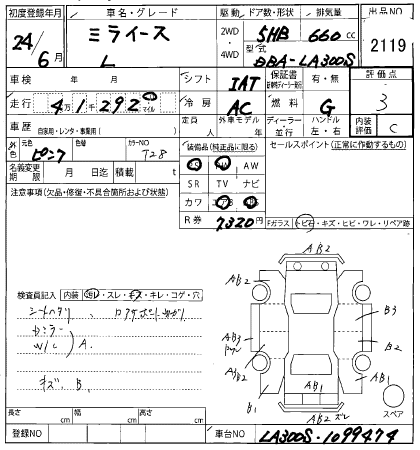 初度登録年月 車名・グレード 駆動 ドア数・形状 排気量 出品NO
24/6月 ミライース L 2WD・4WD 5HB 660cc 2119
型式 DBA-LA300S
車検 年 月 シフト IAT 保証書 有・無 評価点
走行 4万1千292 マイル 冷房 AC 燃料 G 3
車歴 自家用・レンタ・事業用( ) 定員 人 外車モデル 年 ディーラー・並行 ハンドル 左・右 内装評価 C
外色 元色 ピンク 色替 カラーNO T28 装備品(純正品に限る) セールスポイント(正常に作動するもの)
PS PW AW
名義変更期限 月 日迄 積載 t SR TV ナビ
注意事項(欠品・修復・不具合箇所および状態) カワ エアB
R券 7320円 Fガラス トビ石・キズ・ヒビ・ワレ・リペア跡
AB2
AB2
検査員記入 内装 スレ・キズ・キレ・コゲ・穴
シートヘタリ
AB3 B3
W/C A.
A/B2 B2
キズ B1
AB1 AB1
B1
AB2 ズレ スペア
長さ cm 幅 cm 高さ cm
登録NO 車台NO LA300S-1099474